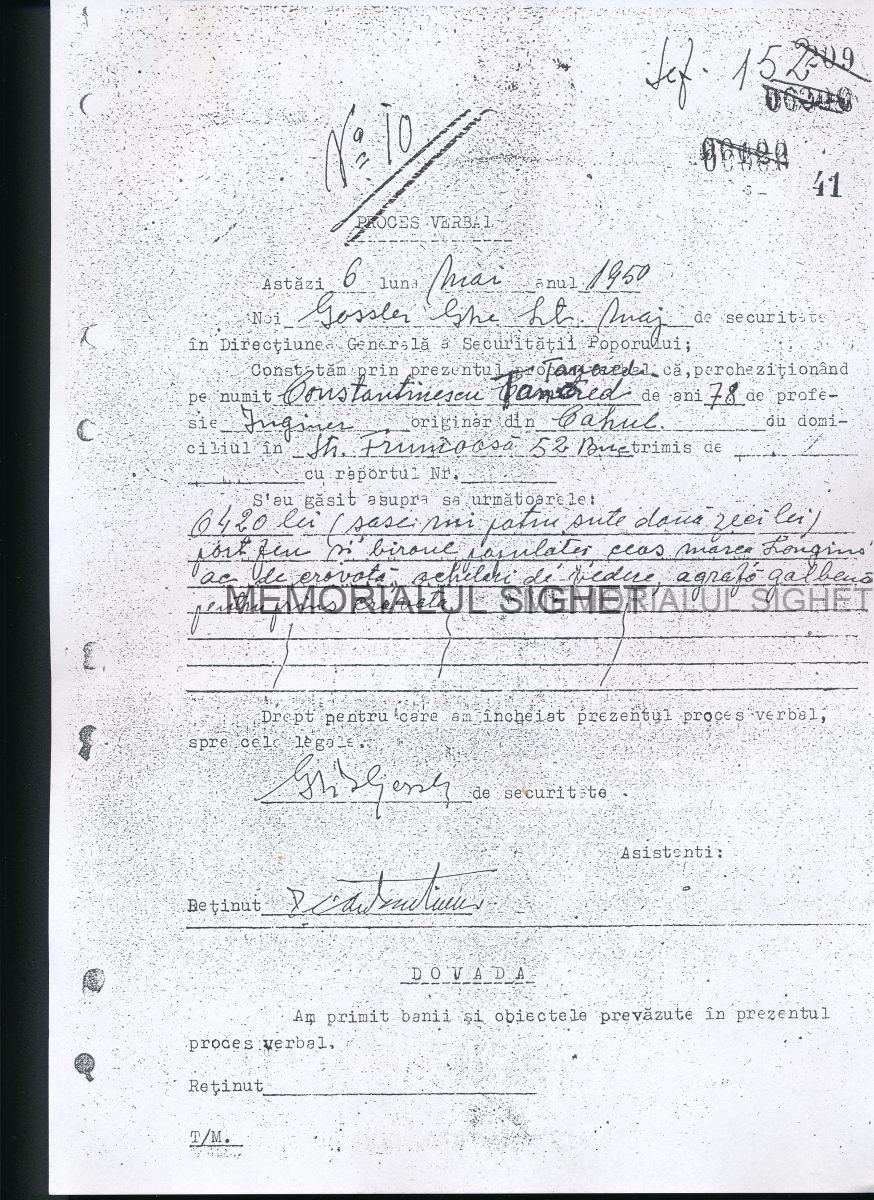 Sef. 152 209
06200
00420
No 10
41
PROCES VERBAL
Astăzi 6 luna Mai anul 1950
Noi Gossler Ghe Lt. Maj de securitate
în Direcţiunea Generală a Securităţii Poporului;
Constatăm prin prezentul că, percheziţionând
Tancred
pe numit Constantinescu Tancred de ani 78 de profe-
sie Inginer originar din Cahul cu domi-
ciliul în Str. Frumoasă 52 Buc trimis de
cu raportul Nr.
S'au găsit asupra sa următoarele:
6420 lei (sase mii patru sute două zeci lei)
port feu si ceas marca Longins
ac de cravată, ochelari de vedere, agrafă galbenă
pentru prins cravata
MEMORIALUL SIGHET MEMORIALUL SIGHET
Drept pentru care am încheiat prezentul proces verbal,
spre cele legale.
de securitate
Asistenti:
Reţinut
DOVADA
Am primit banii şi obiectele prevăzute în prezentul
proces verbal.
Reţinut
T/M.